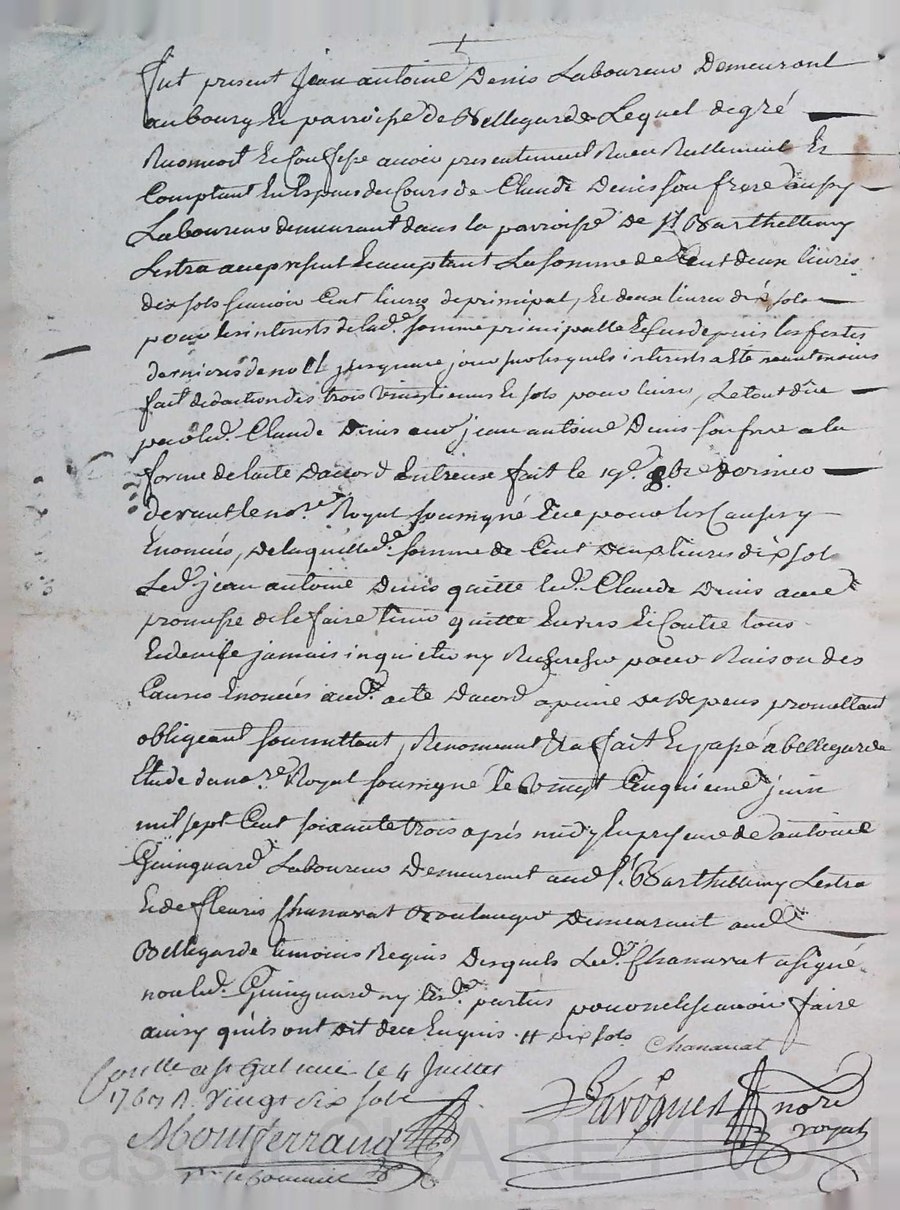 fut present jean antoine Denis Laboureur Demeurant
au bourg Et parroisse de Bellegarde Lequel de gré
Reconnoit Et Confesse avoir presentement Receu Reellement Et
Comptant En Espesses de Cours de Claude Denis son frere aussy
Laboureur demeurant dans la parroisse De St Barthellemy
Lestra a ce present Et acceptant La somme de Cent deux livres
dix sols scavoir Cent livres de principal, Et deux livres dix sols
pour les interests de lad. somme principalle Echus depuis les festes
dernieres de noel jusqua ce jour sur lesquels interests a été
fait deduction des trois vingtiemes Et sols pour livre, Le tout dûe
par led. Claude Denis aud. jean antoine Denis son frere a la
forme de lacte Dacord Entreux fait le 19e. 8bre dernier
devant le nore. Royal soussigné Et pour les Causes y
Enoncées, De laquelle de. somme de Cent Deux livres dix sols
Led. jean antoine Denis quitte led. Claude Denis avec
promesse de le faire tenir quitte Envers Et Contre tous
Et de ne jamais inquieter ny Rechercher pour Raison des
Causes Enoncées aud. acte Dacord a peine de depens promettant
obligeant soumettant, Renonceant &a fait Et passé a bellegarde
Etude du nore. Royal soussigné le vingt Cinquieme juin
mil sept Cent soixante trois après midy En presence de antoine
Guinguard Laboureur Demeurant aud. St. Barthellemy Lestra
Et de fleuris Chanavat Boulanger Demeurant aud.
Bellegarde temoins Requis Desquels Led. Chanavat a signé
non led. Guinguard ny lesd. parties pour ne le scavoir faire
ainsy quils ont dit de ce Enquis. # dix sols
Chanavat
Conlle a St Galmier le 4 Juillet
1763 R. vingt six sols
Montferrand
Bavoguest nore
royal
Pas CHAREYRON